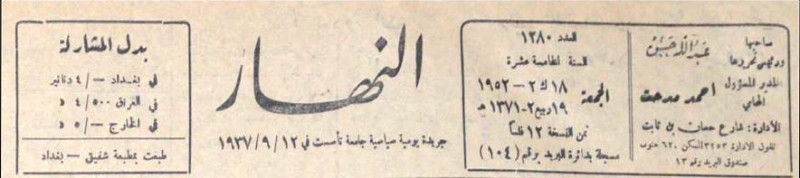 صاحبها
ورئيس تحريرها
المدير المسؤول
المحامي
احمد مدحت
الأدارة: شارع حسان بن ثابت
صندوق البريد رقم ١٣
العدد ١٣٨٠
السنة الخامسة عشرة
الجمعة
١٨ ك٢ – ١٩٥٢
١٩ ربيع٢ – ١٣٧١ هـ
ثمن النسخة ١٢ فلساً
مسجلة بدائرة البريد برقم (١٠٤)
النهار
جريدة يومية سياسية جامعة تأسست في ١٢/ ٩/ ١٩٣٧
بدل المشاركة
في بغداد —/ ٤ دنانير
في العراق ٥٠٠/ ٤ د
في الخارج —/ ٥ د
طبعت بمطبعة شفيق – بغداد